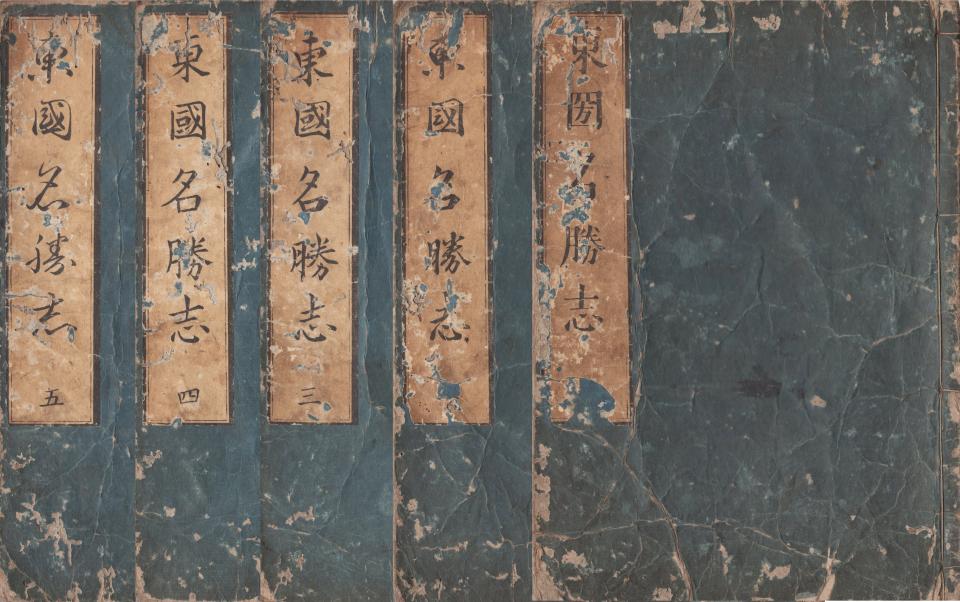 東國名勝志
東國名勝志
東國名勝志 三
東國名勝志 四
東國名勝志 五